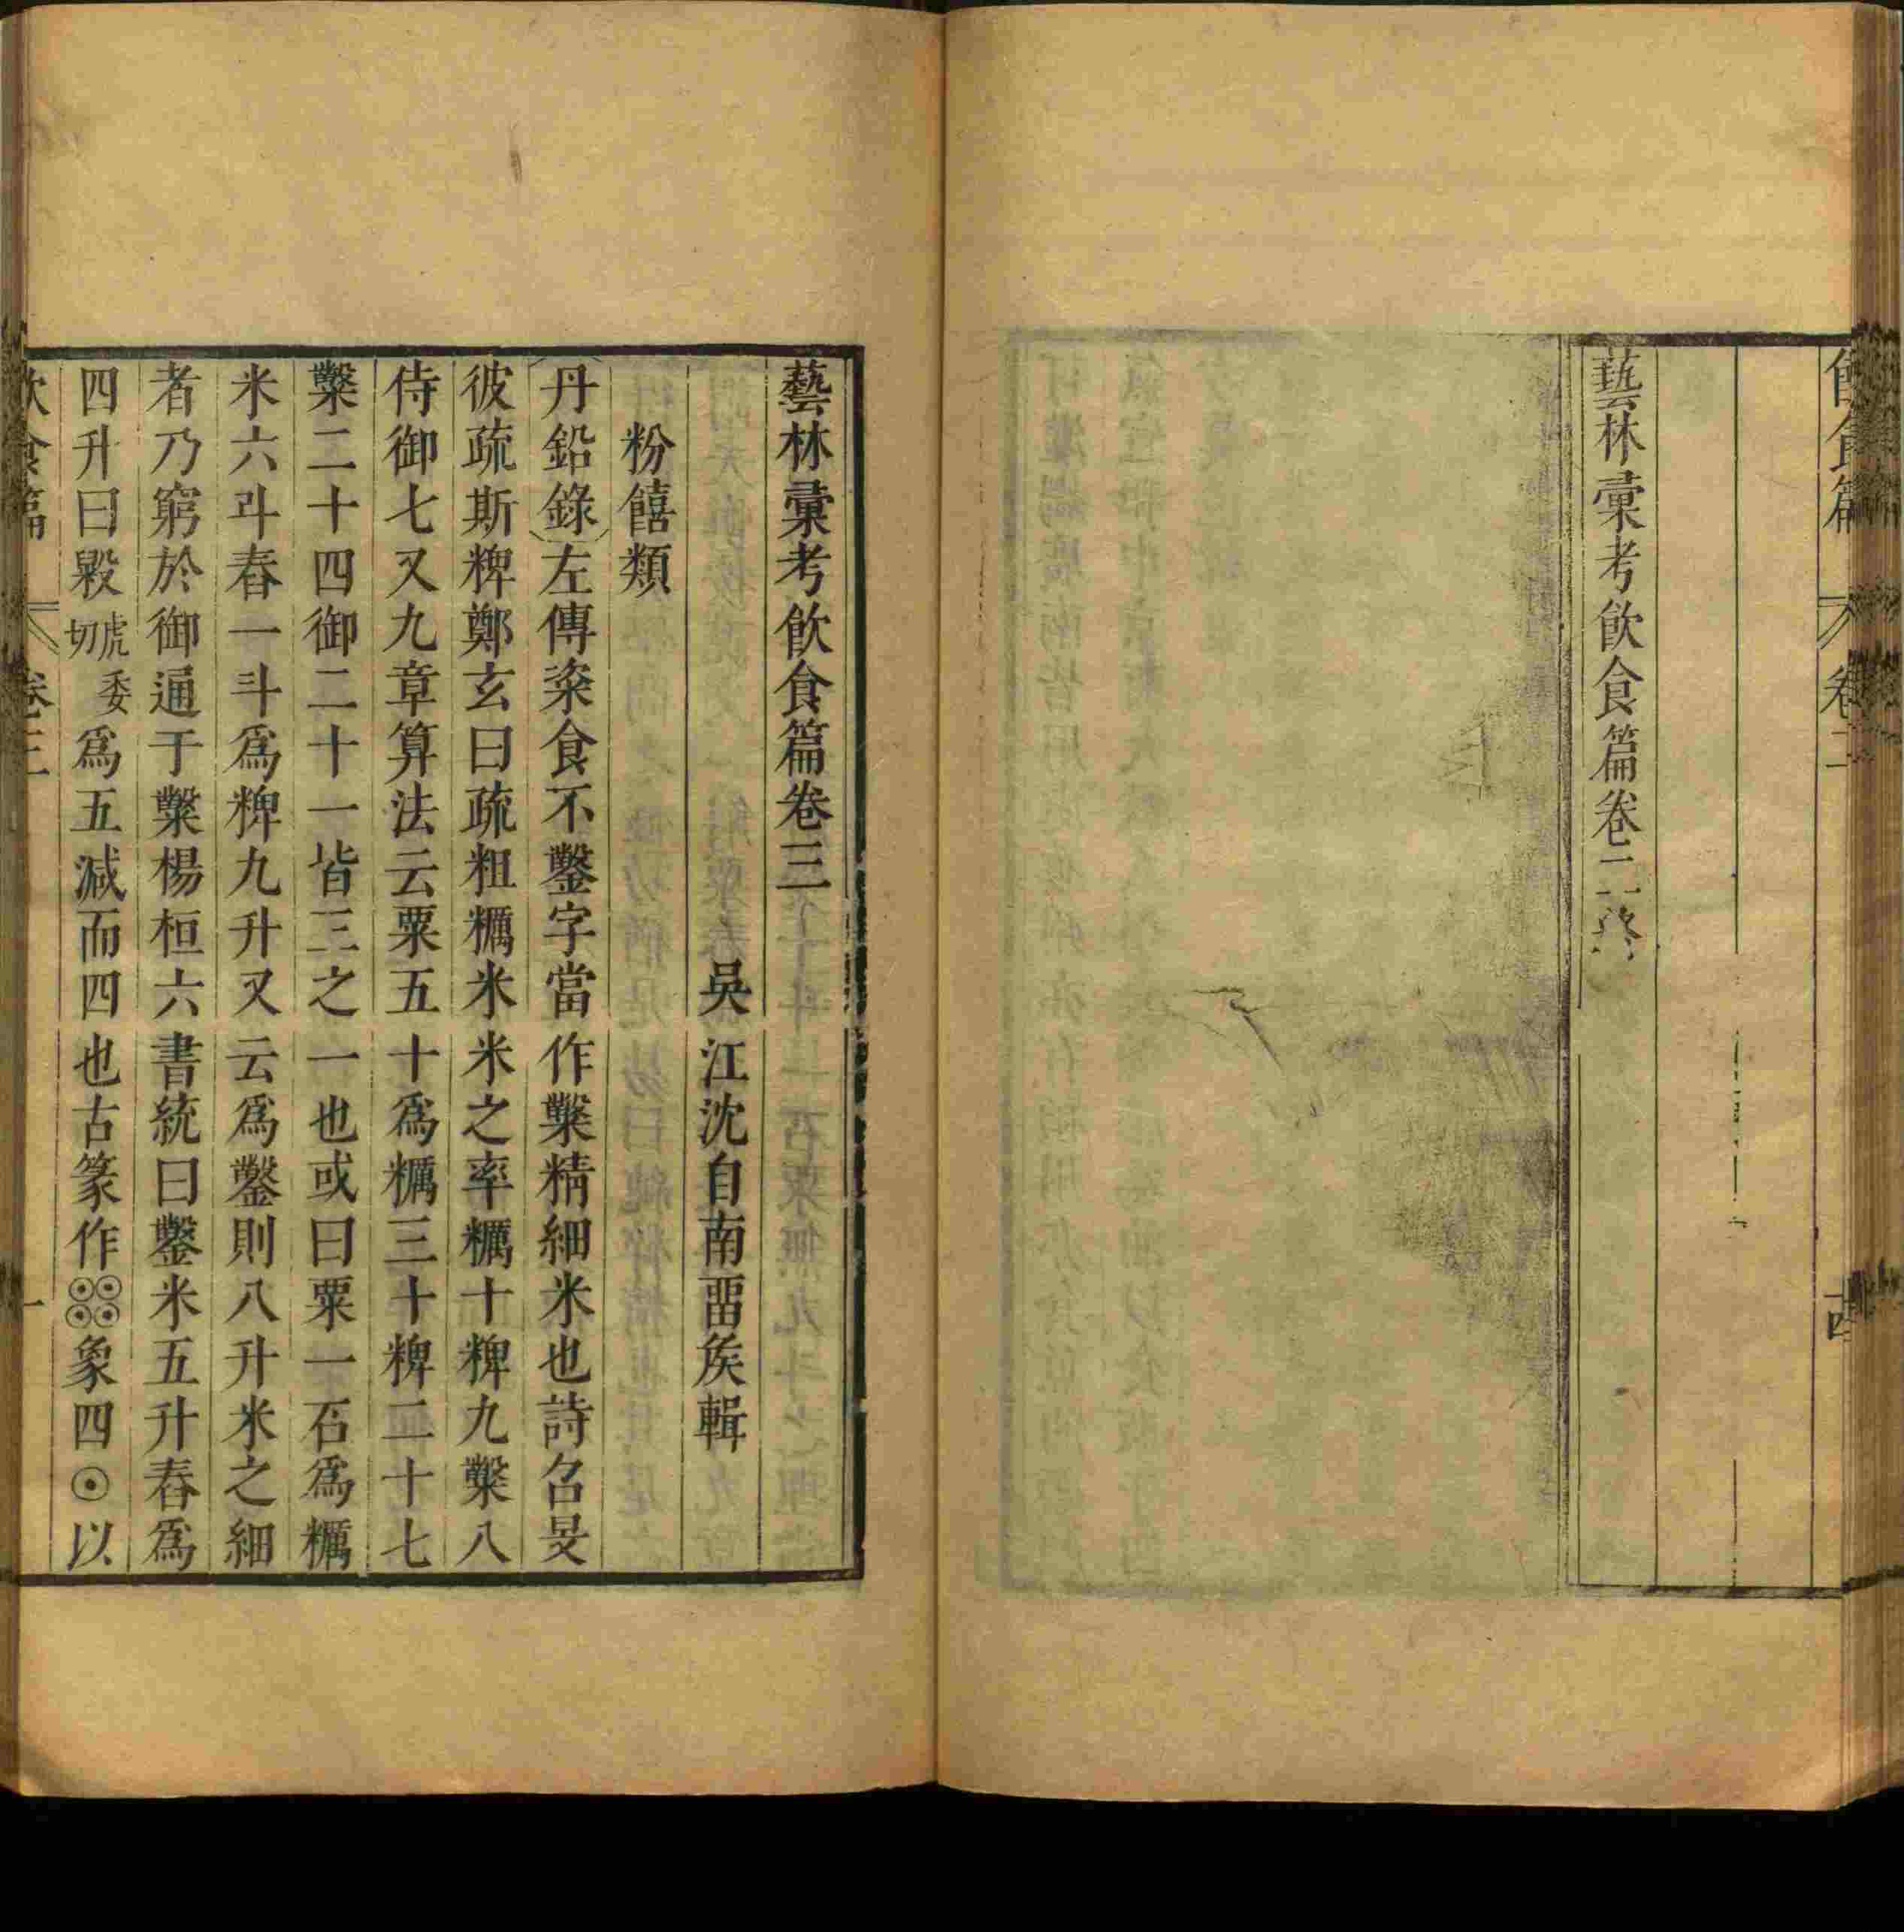 飲食篇 卷二 十四
藝林彙考飲食篇卷二終
藝林彙考飲食篇卷三
吳江沈自南畱矦輯
粉饎類
丹鉛錄左傳粢食不鑿字當作糳精細米也詩召旻
彼疏斯粺鄭玄曰疏粗糲米米之率糲十粺九糳八
侍御七又九章算法云粟五十爲糲三十粺二十七
糳二十四御二十一皆三之一也或曰粟一石爲糲
米六斗舂一斗爲粺九升又云爲鑿則八升米之細
者乃窮於御通于糳楊桓六書統曰鑿米五升舂爲
四升曰毇虎委切爲五減而四也古篆作象四⊙以
飲食篇 卷三 一